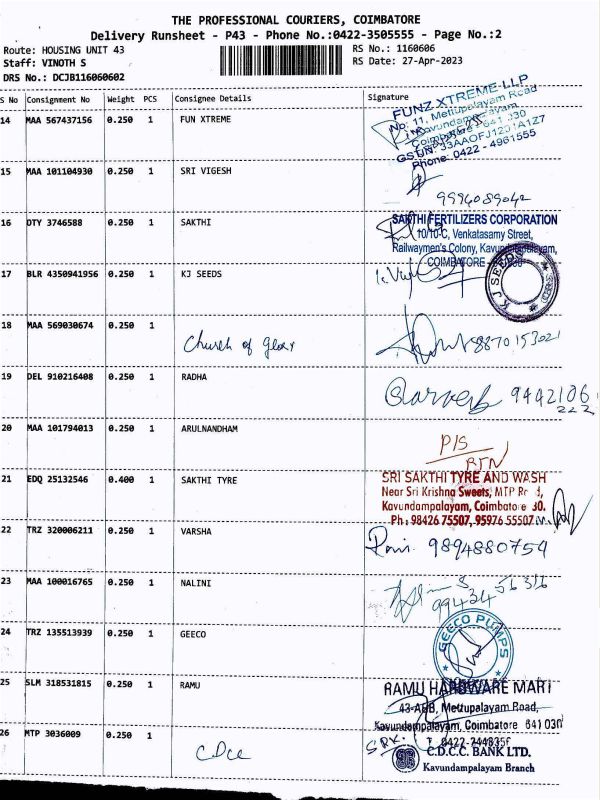 THE PROFESSIONAL COURIERS, COIMBATORE
Delivery Runsheet - P43 - Phone No.:0422-3505555 - Page No.:2
Route: HOUSING UNIT 43
Staff: VINOTH S
DRS No.: DCJB116060602
RS No.: 1160606
RS Date: 27-Apr-2023
S No Consignment No Weight PCS Consignee Details Signature
14 MAA 567437156 0.250 1 FUN XTREME
FUNZ XTREME LLP
No: 11, Mettupalayam Road
Kavundampalayam
Coimbatore - 641 030
GSTUN: 33AAOFJ1231A1Z7
Phone: 0422 - 4961555
15 MAA 101104930 0.250 1 SRI VIGESH
9994089042
16 DTY 3746588 0.250 1 SAKTHI
SAKTHI FERTILIZERS CORPORATION
10/10-C, Venkatasamy Street,
Railwaymen's Colony, Kavundampalayam,
COIMBATORE
17 BLR 4350941956 0.250 1 KJ SEEDS
KJ SEEDS
18 MAA 569030674 0.250 1 Church of glory
9887015302
19 DEL 910216408 0.250 1 RADHA
9442106
222
20 MAA 101794013 0.250 1 ARULNANDHAM
P/S
RTN
21 EDQ 25132546 0.400 1 SAKTHI TYRE
SRI SAKTHI TYRE AND WASH
Near Sri Krishna Sweets, MTP Road,
Kavundampalayam, Coimbatore 30.
Ph : 98426 75507, 95976 55507
22 TRZ 320006211 0.250 1 VARSHA
9894880754
23 MAA 100016765 0.250 1 NALINI
99434 56316
24 TRZ 135513939 0.250 1 GEECO
GEECO PUMPS
25 SLM 318531815 0.250 1 RAMU
RAMU HARDWARE MART
Mettupalayam Road,
Kavundampalayam, Coimbatore 641 030
26 MTP 3036009 0.250 1 CDCC
C.D.C.C. BANK LTD.
Kavundampalayam Branch